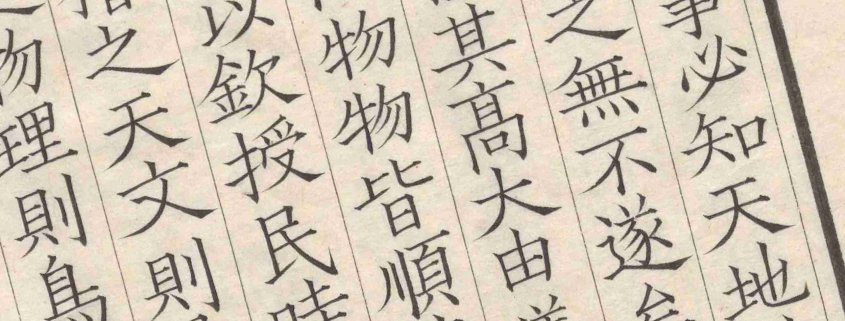 事必知天地
之無不遂
其髙大由
物物皆順
以欽授民時
之天文則
物理則鳥